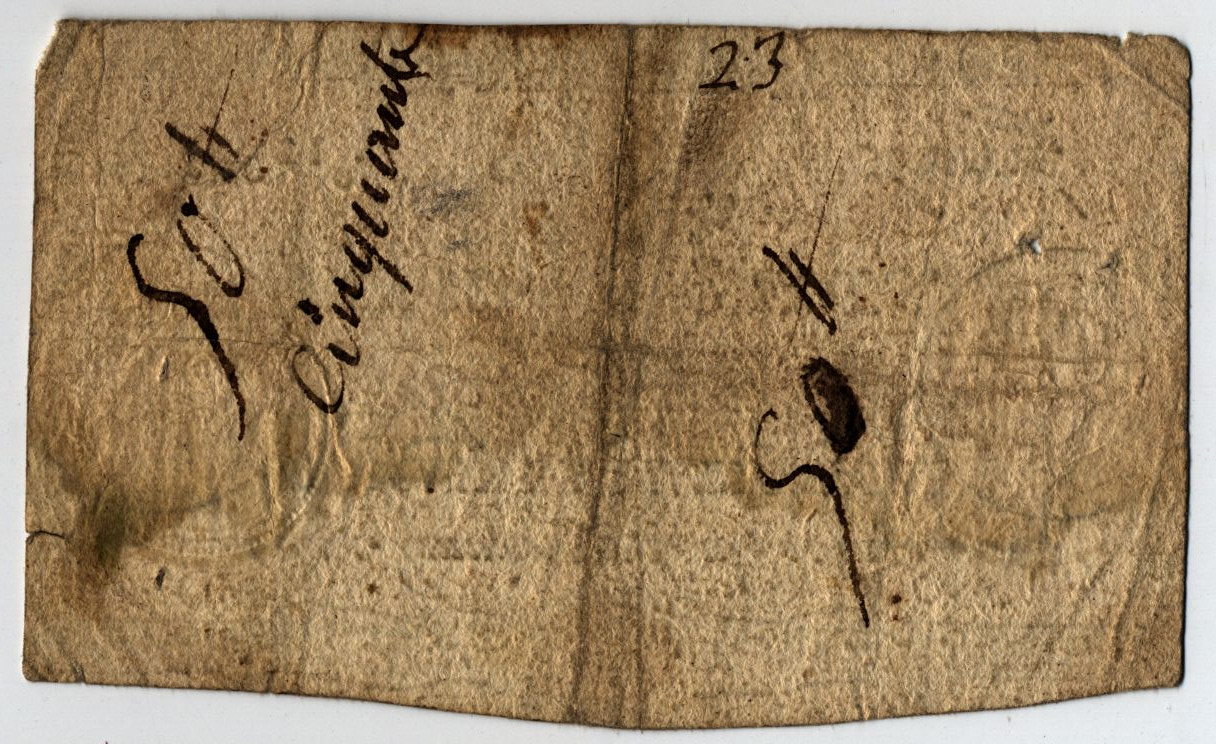 23
50 ₶
Cinquante
50 ₶